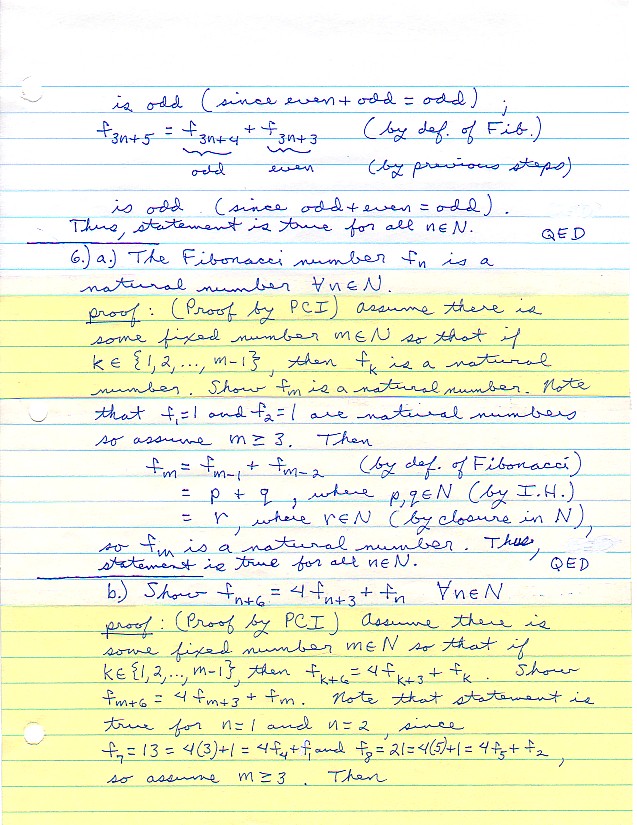 is odd (since even + odd = odd) ;
f_{3n+5} = f_{3n+4} + f_{3n+3} (by def. of Fib.)
odd even (by previous steps)
is odd (since odd + even = odd) .
Thus, statement is true for all n∈N. QED
6.) a.) The Fibonacci number f_n is a
natural number ∀n∈N.
proof : (Proof by PCI) Assume there is
some fixed number m∈N so that if
k ∈ {1,2,..., m-1}, then f_k is a natural
number. Show f_m is a natural number. Note
that f_1=1 and f_2=1 are natural numbers
so assume m ≥ 3. Then
f_m = f_{m-1} + f_{m-2} (by def. of Fibonacci)
= p + q , where p,q∈N (by I.H.)
= r , where r∈N (by closure in N),
so f_m is a natural number. Thus,
statement is true for all n∈N. QED
b.) Show f_{n+6} = 4 f_{n+3} + f_n ∀n∈N
proof : (Proof by PCI) Assume there is
some fixed number m∈N so that if
k∈{1,2,.., m-1}, then f_{k+6} = 4 f_{k+3} + f_k . Show
f_{m+6} = 4 f_{m+3} + f_m. Note that statement is
true for n=1 and n=2 , since
f_7 = 13 = 4(3)+1 = 4f_4 + f_1 and f_8 = 21 = 4(5)+1 = 4f_5 + f_2 ,
so assume m ≥ 3 . Then